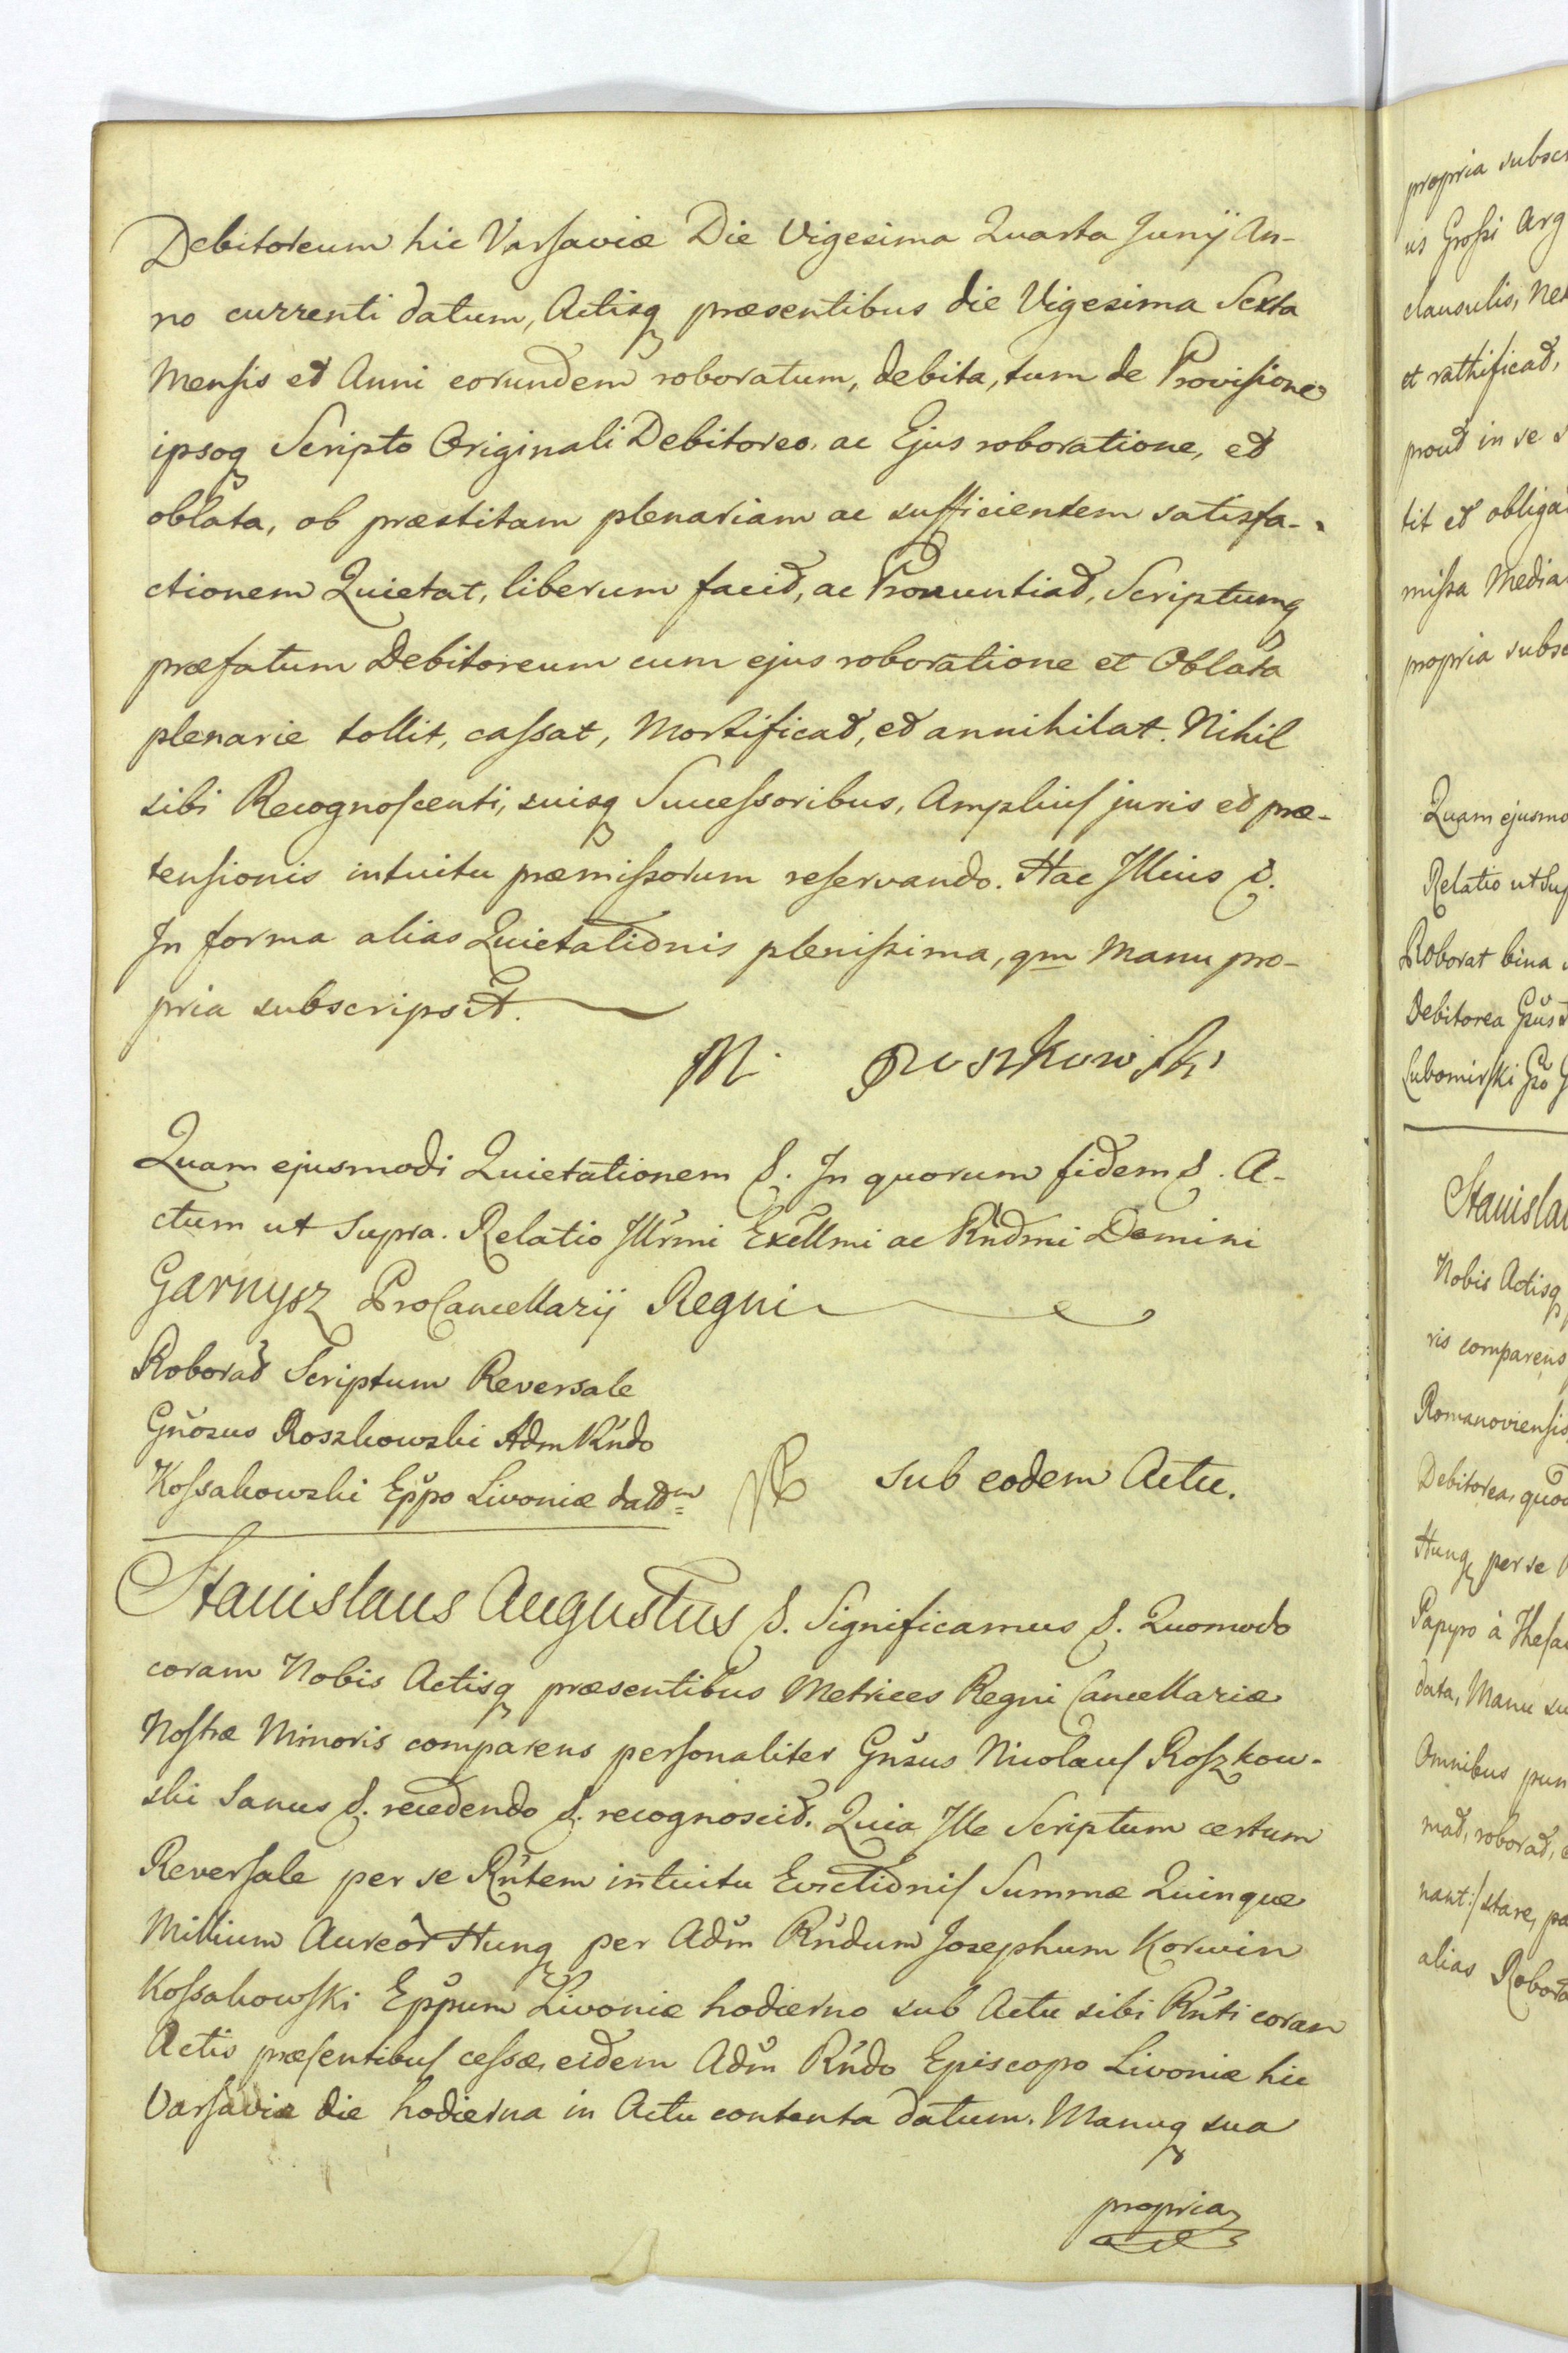 Debitoreum hic Varsaviæ Die Vigesima Quarta Junij An-
no currenti datum, Actisq præsentibus die Vigesima Sexta
Mensis et Anni eorundem roboratum, debita, tum de Provisione
ipsoq Scripto Originali Debitoreo, ac Ejus roboratione, et
oblata, ob præstitam plenariam ac sufficientem satisfa-
ctionem Quietat, liberum facit, ac Pronuntiat, Scriptumq
præfatum Debitoreum cum ejus roboratione et Oblata
plenarie tollit, cassat, Mortificat, et annihilat. Nihil
sibi Recognoscenti, suisq Successoribus, Amplius juris et præ-
tensionis intuitu præmissorum reservando. Hac Illius &.
In forma alias Quietationis plenissima, qm Manu pro-
pria subscripsit.
M Roszkowski
Quam ejusmodi Quietationem &. In quorum fidem &. A-
ctum ut Supra. Relatio Illrmi Excllmi ac Rndmi Domini
Garnysz ProCancellarij Regni
Roborat Scriptum Reversale
Gnosus Roszkowski Adm Rndo
Kossakowski Eppo Livoniæ datm
sub eodem Actu.
Stanislaus Augustus &. Significamus &. Quomodo
coram Nobis Actisq præsentibus Metrices Regni Cancellariæ
Nostræ Minoris comparens personaliter Gnsus Nicolaus Roszkow-
ski Sanus &. recedendo &. recognoscit. Quia Ille Scriptum certum
Reversale per se Rntem intuitu Evictionis Summæ Quinque
Millium Aureor Hung per Adm Rndum Josephum Korwin
Kossakowski Eppum Livoniæ hodierno sub Actu sibi Rnti coram
Actis præsentibus cessæ, eidem Adm Rndo Episcopo Livoniæ hic
Varsaviæ die hodierna in Actu contenta datum. Manuq sua
propria
propria subsc
is Grossi Arg
clausulis, ne
et rathificat,
prout in se
tit et obliga
missa Media
propria subsc
Quam ejusmo
Relatio ut Sup
Roborat bina
Debitorea Gnus
Lubomirski Gno
Stanisla
Nobis Actisq
ris comparens
Romanoviensis
Debitorea, quo
Hung per se
Papyro à Thesa
data, Manu su
Omnibus pun
mat, roborat,
nant:/ stare, pa
alias Robora